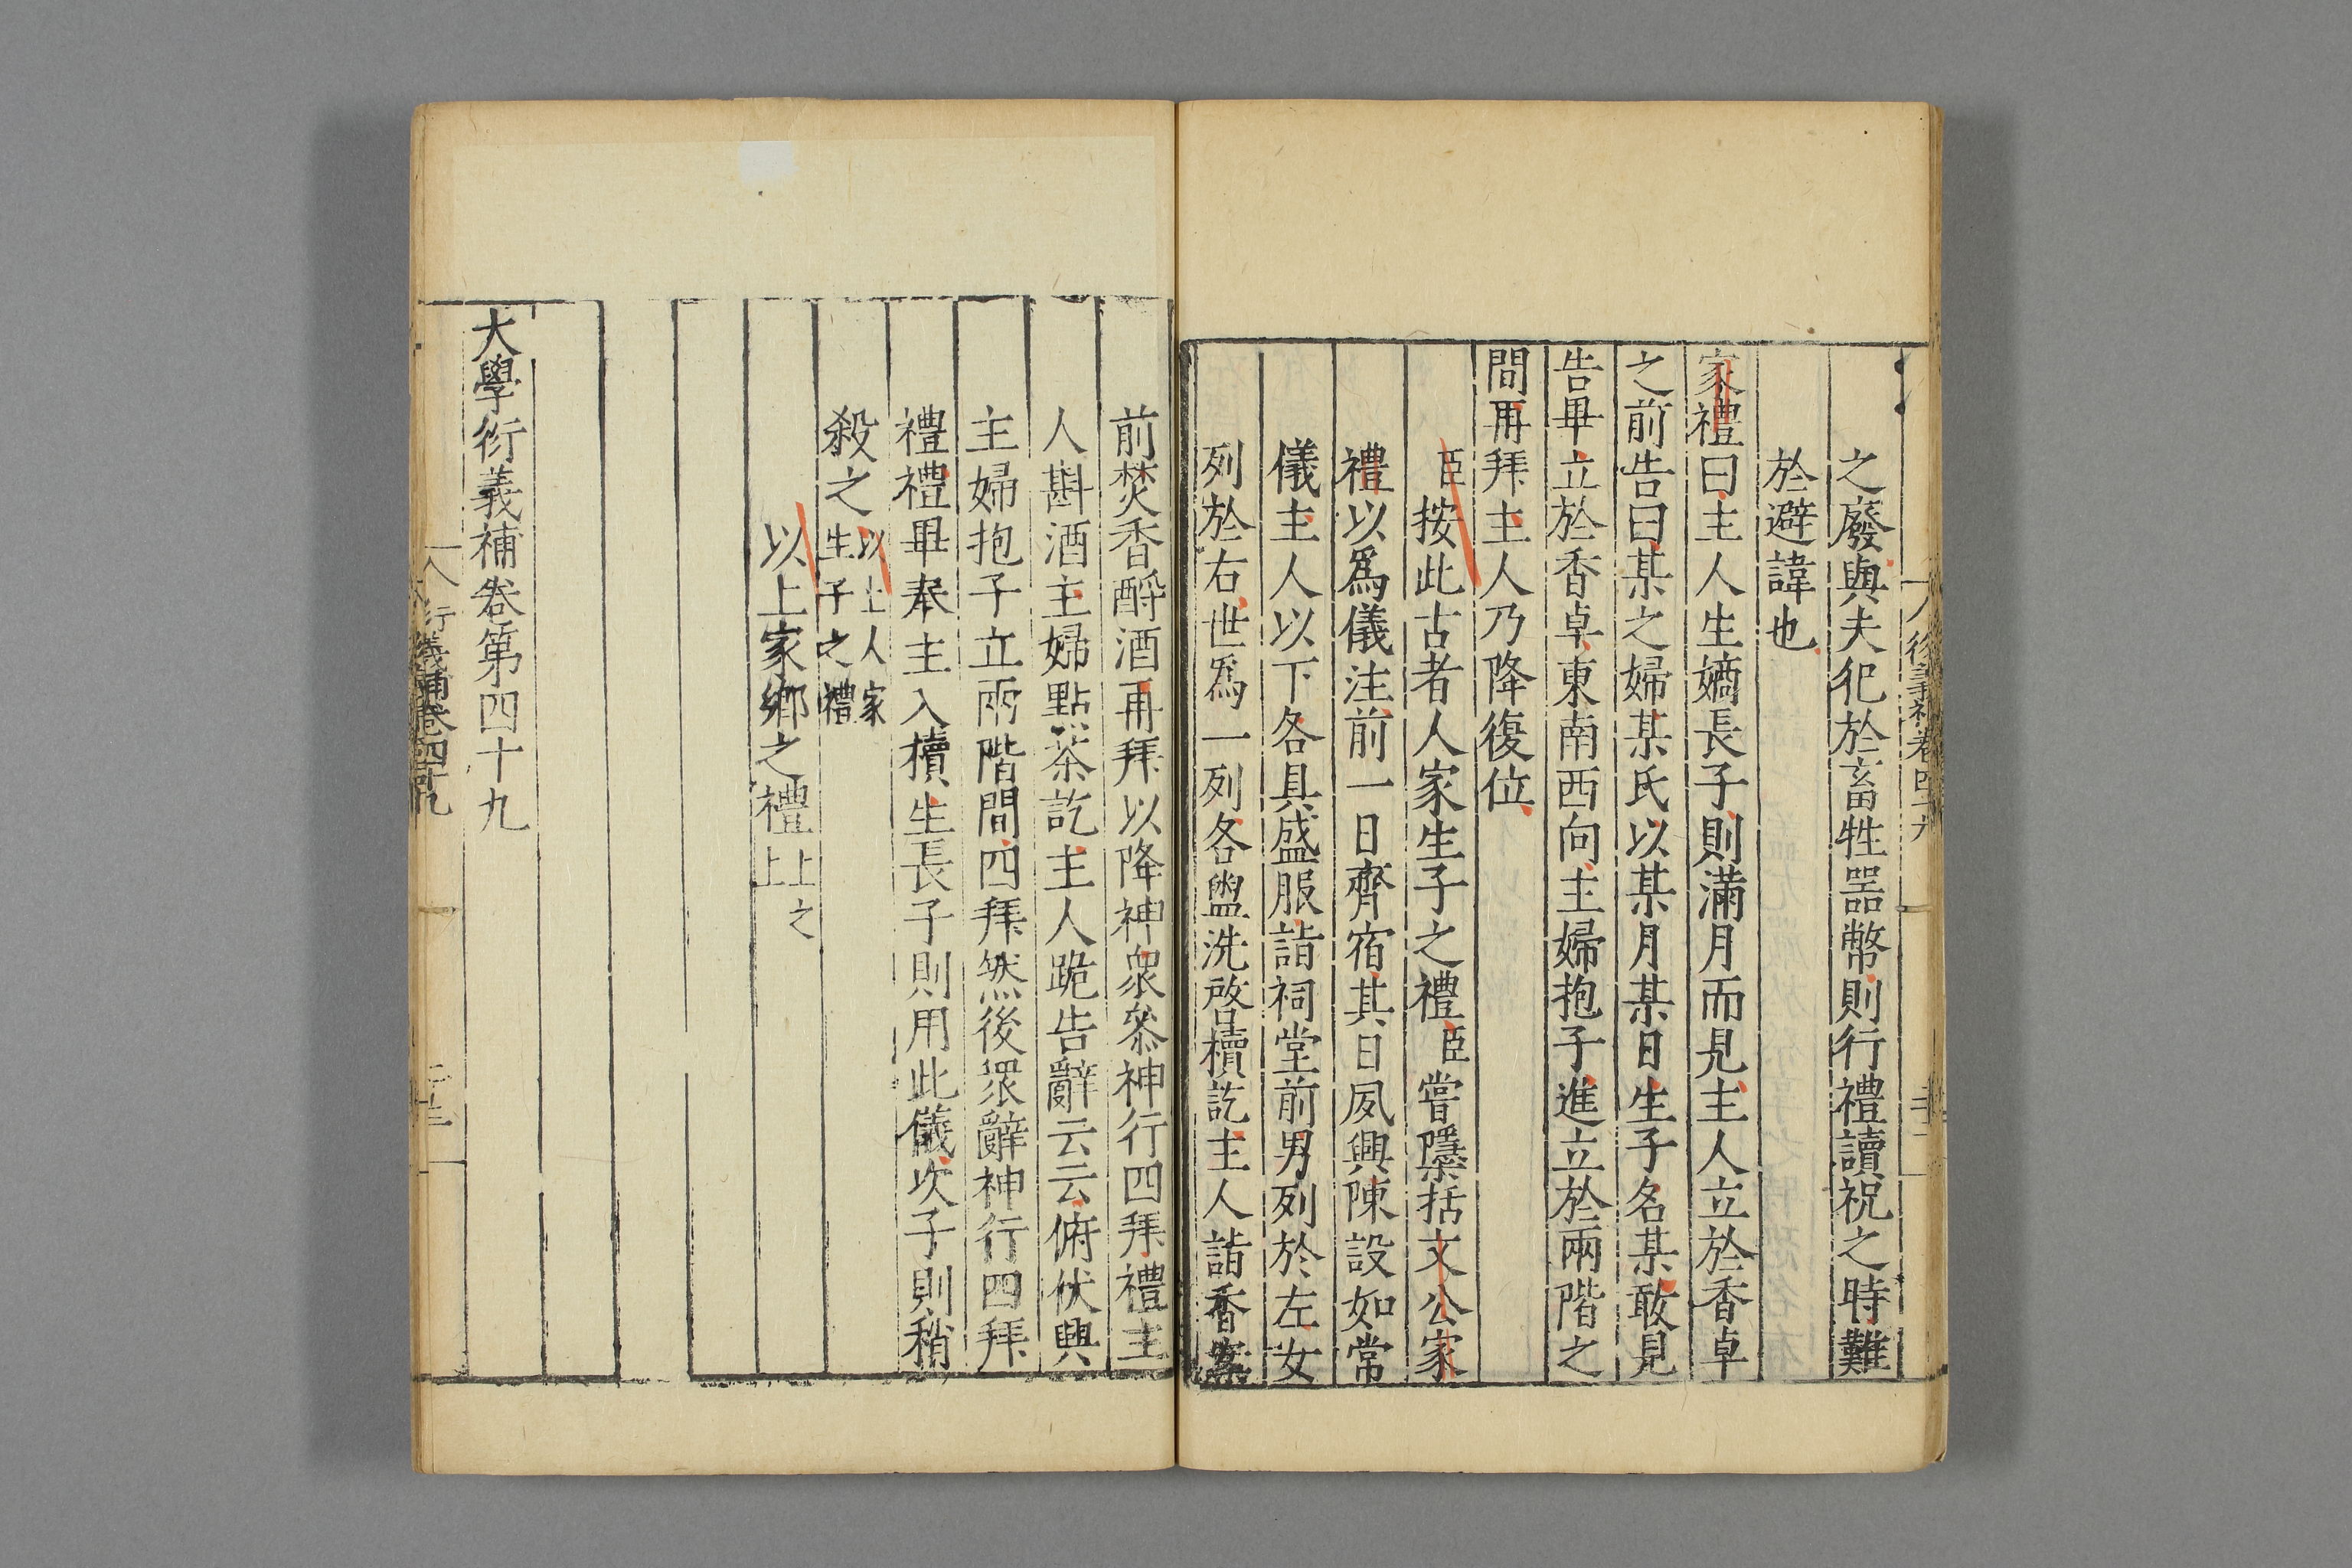 之廢與夫犯於畜牲噐幣則行禮讀祝之時難
於避諱也
家禮曰主人生嫡長子則滿月而見主人立於香卓
之前告曰某之婦某氏以某月某日生子名某敢見
告畢立於香卓東南西向主婦抱子進立於兩階之
間再拜主人乃降復位
臣按此古者人家生子之禮臣嘗隱括文公家
禮以爲儀注前一日齊宿其日夙興陳設如常
儀主人以下各具盛服詣祠堂前男列於左女
列於右世爲一列各盥洗啓櫝訖主人詣香案
前焚香酹酒再拜以降神衆叅神行四拜禮主
人斟酒主婦點茶訖主人跪告辭云云俯伏興
主婦抱子立兩階間四拜然後衆辭神行四拜
禮禮畢奉主入櫝生長子則用此儀次子則稍
殺之以上人家
生子之禮
以上家鄉之禮上之
上
大學衍義補卷第四十九
衍義補卷四十九